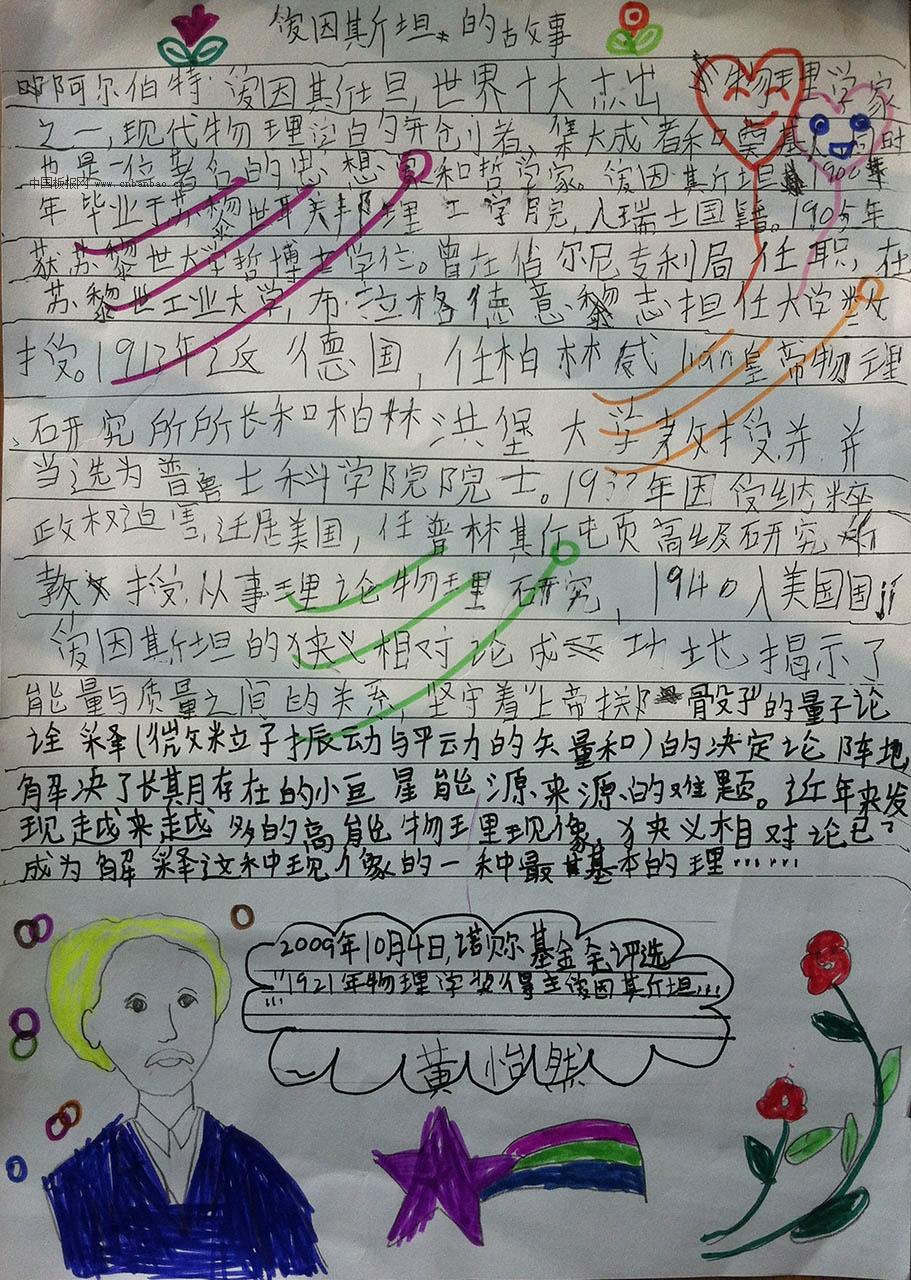 俊因斯坦的故事
阿尔伯特·俊因斯坦,世界十大杰出物理学家
之一,现代物理学的开创者、集大成者和奠基人,同时
也是一位著名的思想家和哲学家。俊因斯坦1900年
中国板报网 www.cnbanbao.cn
年毕业于苏黎世联邦理工学院,入瑞士国籍。1905年
获苏黎世大学哲博士学位。曾在伯尔尼专利局任职,在
苏黎世工业大学,布·拉格德意志担任大学教
授。1913年返德国,任柏林威lian皇帝物理
研究所所长和柏林洪堡大学教授并并
当选为普鲁士科学院院士。1933年因受纳粹
政权迫害,迁居美国,任普林其斤屯顶高级研究所
教授,从事理论物理研究,1940入美国国
俊因斯坦的狭义相对论成功地揭示了
能量与质量之间的关系,坚守着"上帝掷骰子"的量子论
诠释(微粒子振动与平动的矢量和)的决定论阵地
解决了长期存在的小恒星能源来源的难题。近年来发
现越来越多的高能物理现象,狭义相对论已
成为解释这种现像的一种最基本的理……
2009年10月4日,诺贝尔基金会评选
"1921年物理学奖得主俊因其斤坦…
黄怡然